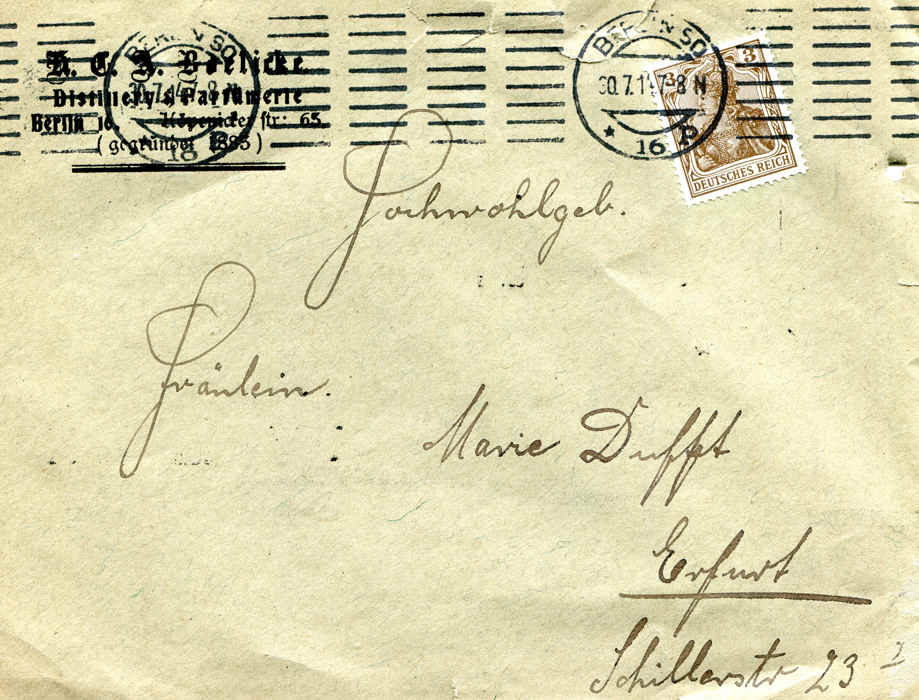 H. C. A. Boelicke
Distillery & Parfümerie
Berlin 16 Köpenicker str: 65.
(gegründet 1885)
BERLIN SO
30.7.14.7-8 N
16
BERLIN SO
30.7.14.7-8 N
* 16 P
3
DEUTSCHES REICH
Hochwohlgeb.
Fräulein.
Marie Dufft
Erfurt
Schillerstr 23